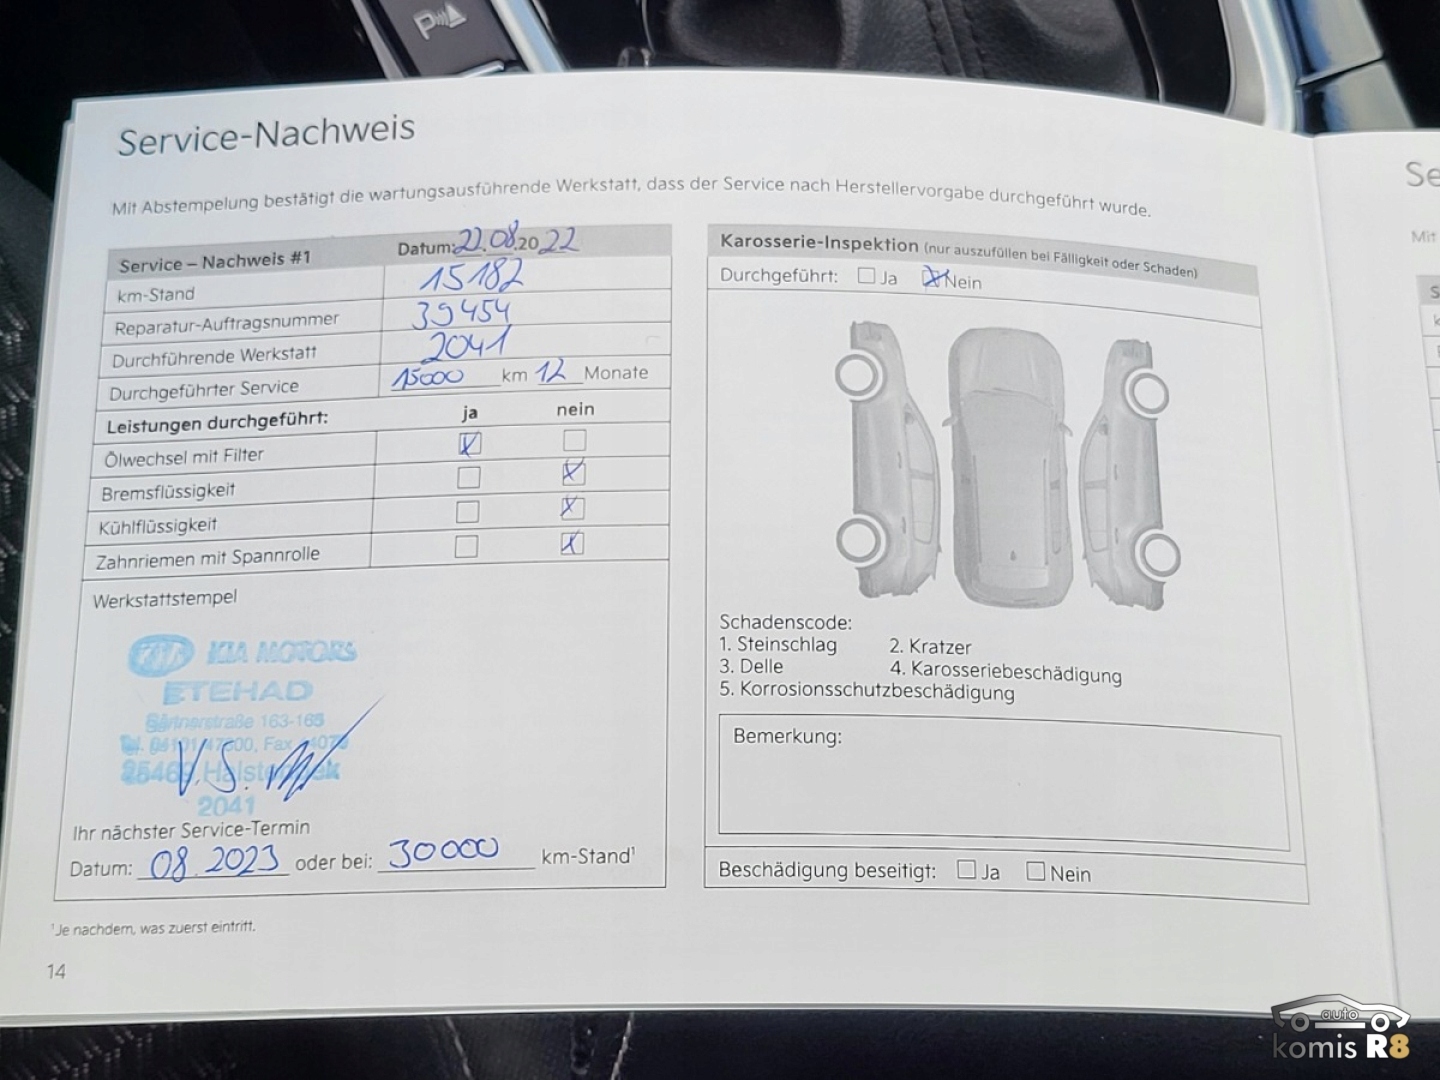 Service-Nachweis
Mit Abstempelung bestätigt die wartungsausführende Werkstatt, dass der Service nach Herstellervorgabe durchgeführt wurde.
Service – Nachweis #1 Datum: 22.08.2022
km-Stand 15182
Reparatur-Auftragsnummer 39454
Durchführende Werkstatt 2041
Durchgeführter Service 15000 km 12 Monate
Leistungen durchgeführt: ja nein
Ölwechsel mit Filter
Bremsflüssigkeit
Kühlflüssigkeit
Zahnriemen mit Spannrolle
Werkstattstempel
KIA KIA MOTORS
ETEHAD
Gärtnerstraße 163-165
Fax
25469 Halstenbek
2041
Ihr nächster Service-Termin
Datum: 08.2023 oder bei: 30000 km-Stand¹
¹Je nachdem, was zuerst eintritt.
14
Karosserie-Inspektion (nur auszufüllen bei Fälligkeit oder Schaden)
Durchgeführt: Ja Nein
Schadenscode:
1. Steinschlag 2. Kratzer
3. Delle 4. Karosseriebeschädigung
5. Korrosionsschutzbeschädigung
Bemerkung:
Beschädigung beseitigt: Ja Nein
Se
Mit
S
auto
komis R8